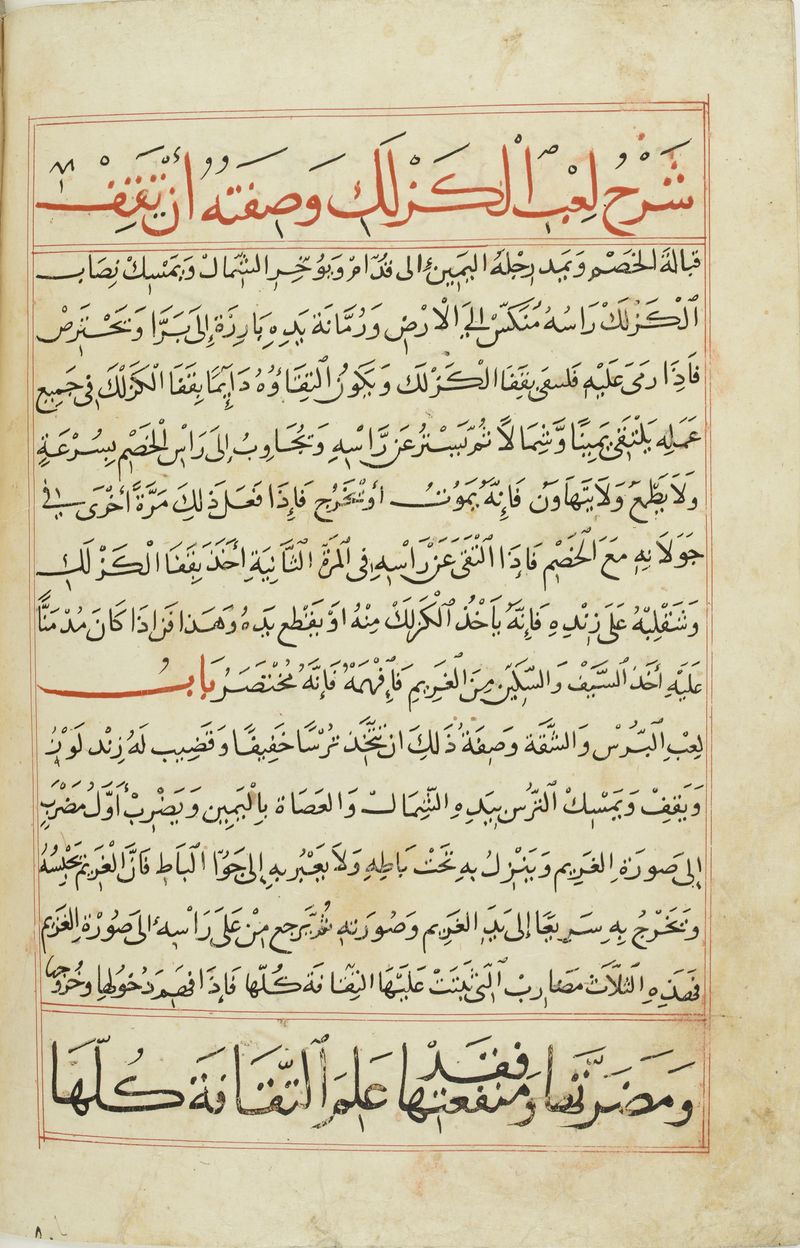 شَرْحُ لِعْبِ الْكَزْلَكِ وَصِفَتِه أَنْ يَقِفْ
قبالة الخصم ويمد رجله اليمين إلى قدام ويوخر الشمال ويمسك نصاب
الكزلك راسه منكس إلى الارض ورمانة يده بارزة إلى برا ويحترص
فاذا رمى عليه فلسقى بقفا الكزلك ويكون التقاؤه دايما بقفا الكزلك فى جميع
عمله يلتقى يمينا وشمالا ثم يستر عن راسه ويجاوب إلى راس الخصم بسرعة
ولا يطمع ولا يتهاون فانه يموت أو يتخرج فاذا فعل ذلك مرة أخرى فى
جولانه مع الخصم فاذا التقى عن راسه فى المرة الثانية أخذ بقفا الكزلك
وشقلبه على زنده فانه يأخذ الكزلك منه او يقطع يده وهذا فن اذا كان مدمنا
عليه أخذ السيف والسكين من الغريم فافهمه فانه مختصر باب
لعب الترس والشقة وصفة ذلك ان تتخذ ترسا خفيفا وقضيب له زند لوز
ويقف ويمسك الترس بيده الشمال والعصاة باليمين ويضرب أول مضرب
إلى صورة الغريم وينزل به تحت باطه ولا يعبر به إلى جوا الباط فان الغريم يحبسه
ويخرج به سريعا إلى يد الغريم وصورته ثم يرجع من على راسه الى صورة الغريم
فهذه الثلاث مضارب التى ينبت عليها الثقافة كلها فاذا فهم دخولها وخروجها
ومضرتها ومنفعتها فقد علم الثقافة كلها
٨٠